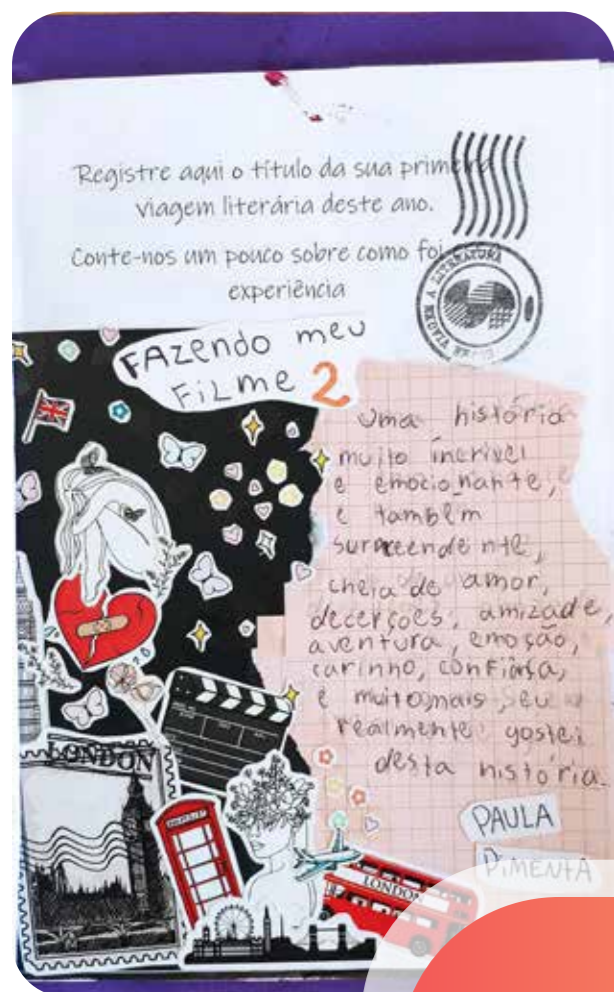 Registre aqui o título da sua primeira
viagem literária deste ano.
Conte-nos um pouco sobre como foi
experiência
A LITERATURA
FAZENDO MEU
FILME 2
Uma história
muito incrível
e emocionante,
e também
surpreendente,
cheia de amor,
decerções, amizade,
aventura, emoção,
carinho, confiança,
e muito mais, eu
realmente gostei
desta história.
LONDON
PAULA
PIMENTA
LONDON